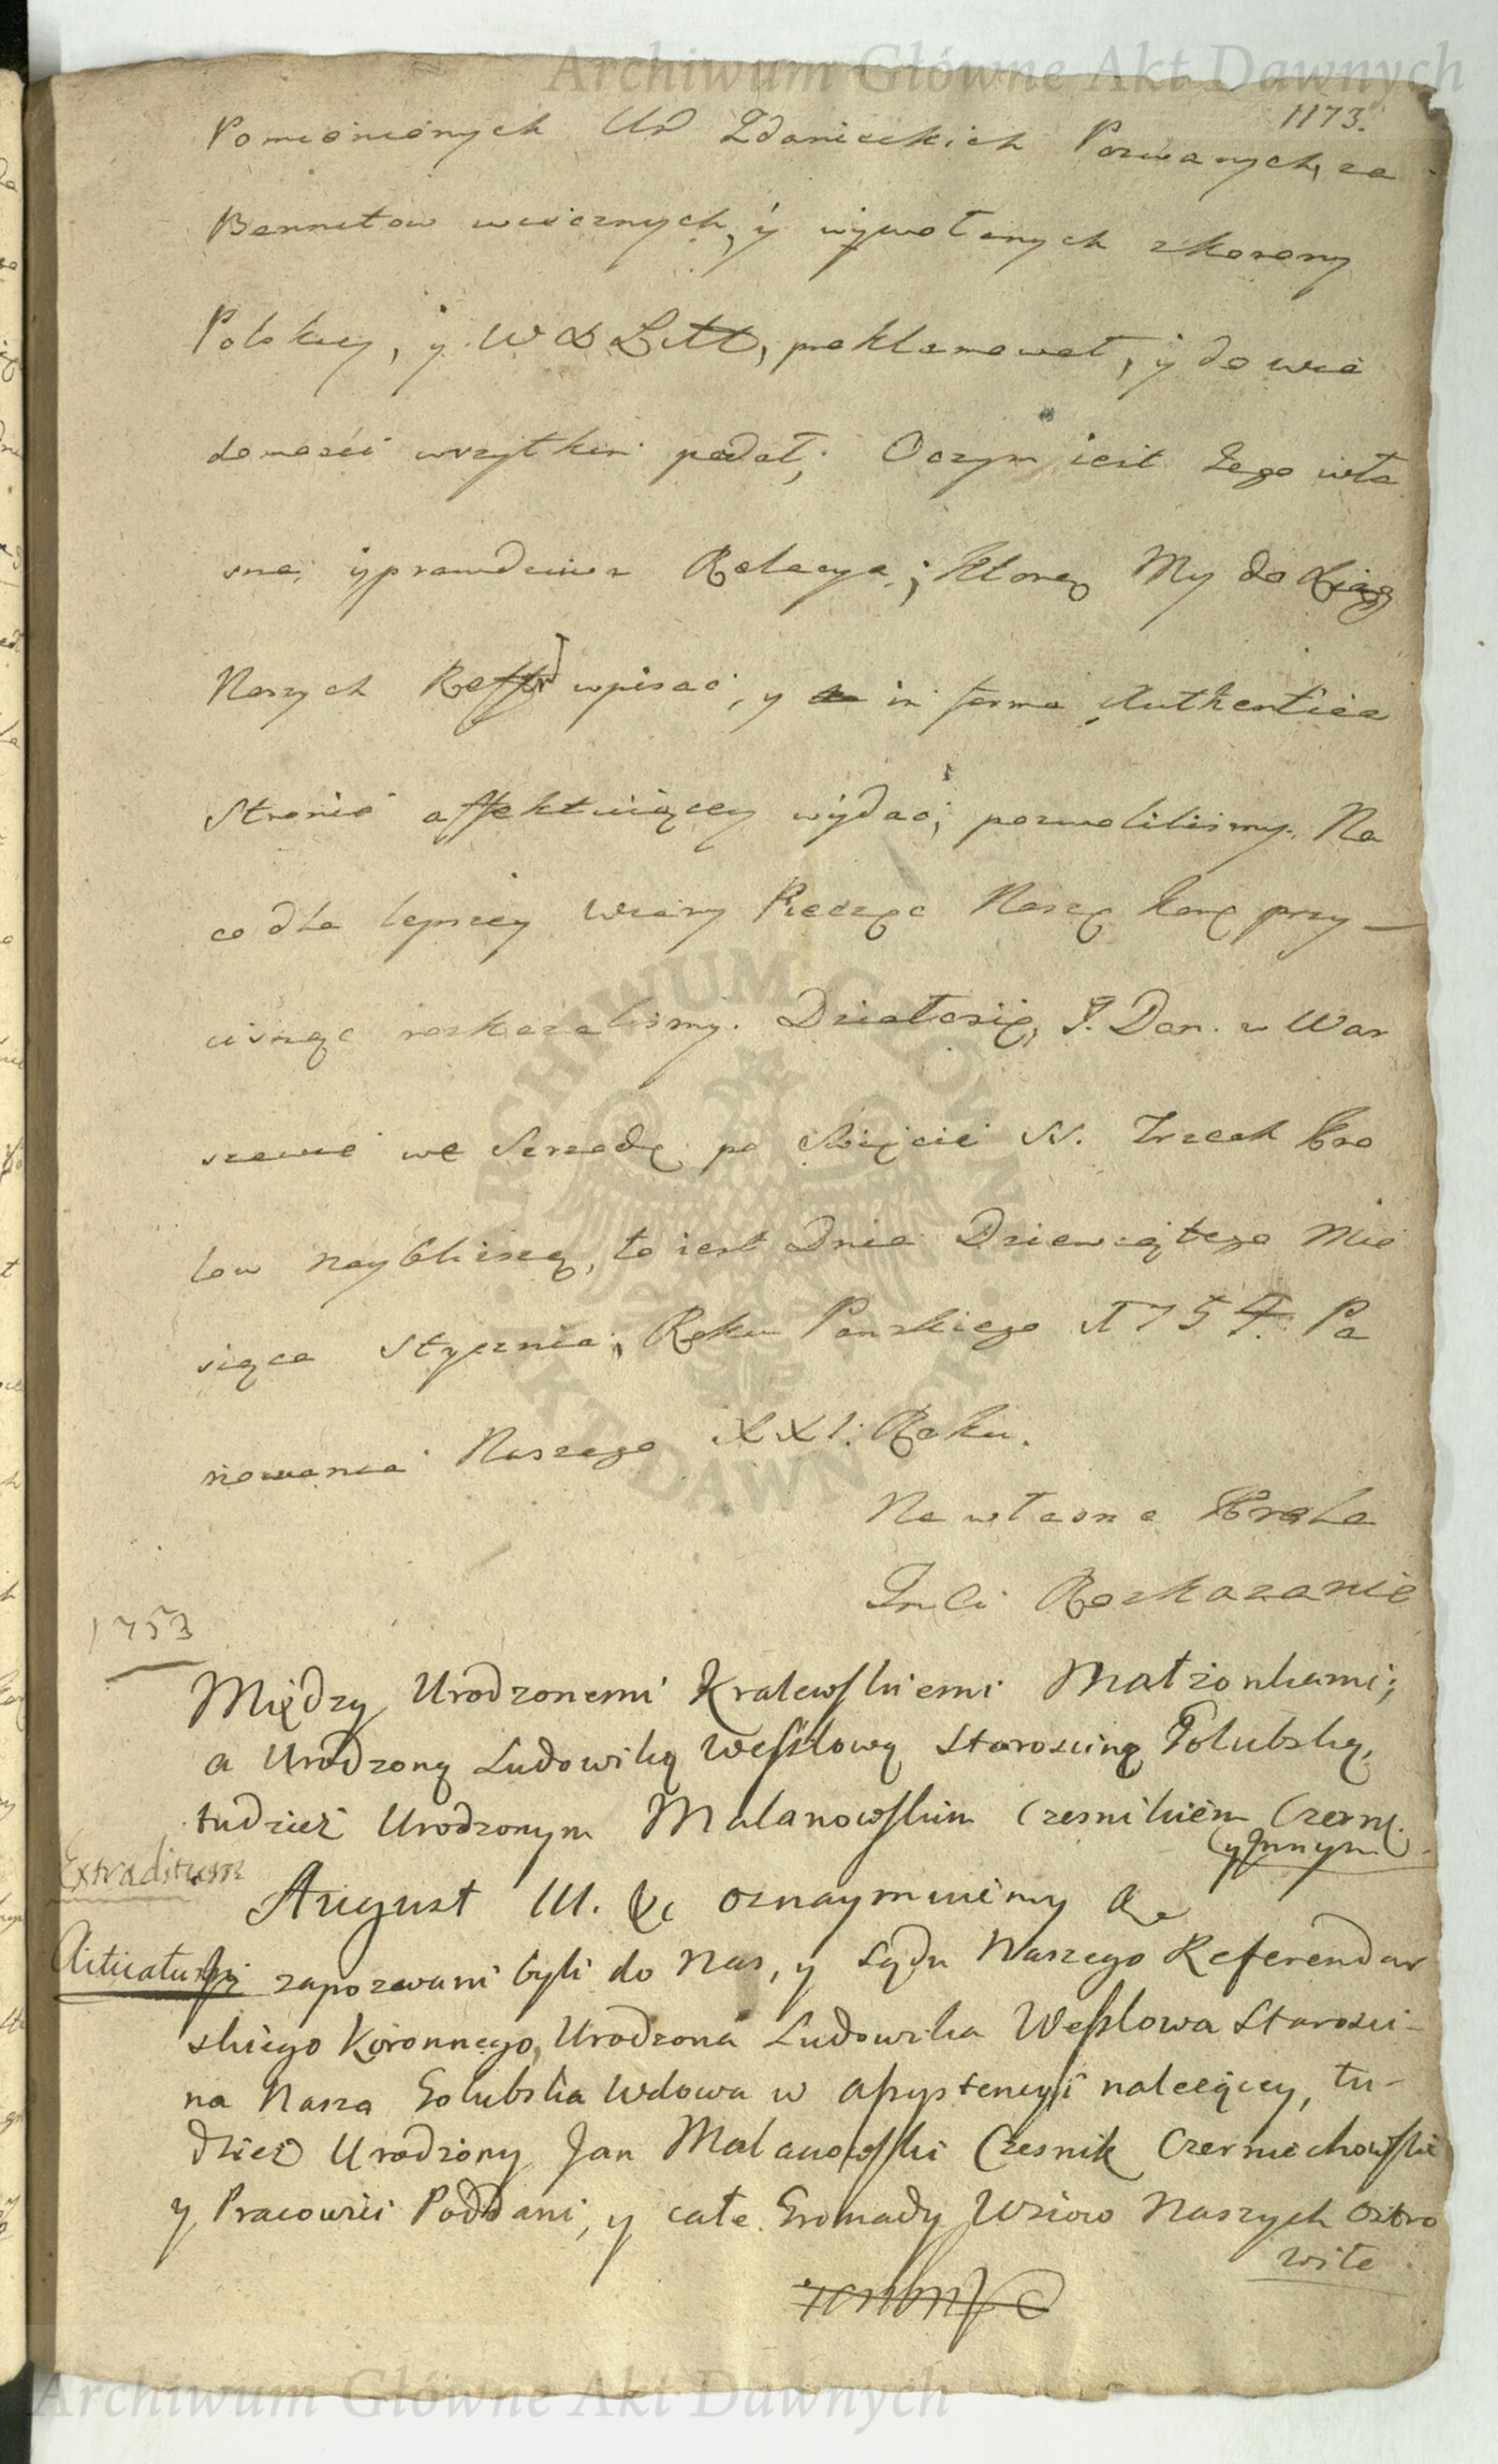 Archiwum Główne Akt Dawnych
1173.
Pomienionych Ur Zdanieckich Pozwanych, za
Bannitow wiecznych, y wywołanych z korony
Polskiey, y W X Litt, proklamował, y do wia
domości wszytkim podał, O czym iest Jego wła
sna, y prawdziwa Relacya; ktorą My do Xiąg
Naszych Reffer wpisać, y in forma Authentica
Stronie affektuiącey wydać, pozwoliliśmy. Na
co dla lepszey wiary Pieczęć Naszą Kor przy—
cisnąć roskazaliśmy. Działosię, S. Dan. w War
szawie we Srzodę po Swięcie SS. Trzech Kro
low naybliższą, to iest Dnia Dziewiątego Mie
siąca Stycznia, Roku Panskiego 1754. Pa
nowania Naszego XXI. Roku.
Na własne Krola
Jmci Rozkazanie
1753
Między Urodzonemi Kralewskiemi Małżonkami;
a Urodzoną Ludowiką Wesslową Starościną Golubską,
tudzież Urodzonym Malanowskim Cześnikiem Czern.
y Innymi
Extraditum
August III. &c oznaymuiemy &c
zapozwani byli do Nas, y Sądu Naszego Referendar
skiego Koronnego, Urodzona Ludowika Wesslowa Starości-
na Nasza Golubska Wdowa w assystencyi należącey, tu-
dzież Urodzony Jan Malanowski Cześnik Czerniechowski
y Pracowici Poddani, y całe Gromady Wsiow Naszych Ostro
wite
Archiwum Główne Akt Dawnych
ARCHIWUM GŁÓWNE AKT DAWNYCH